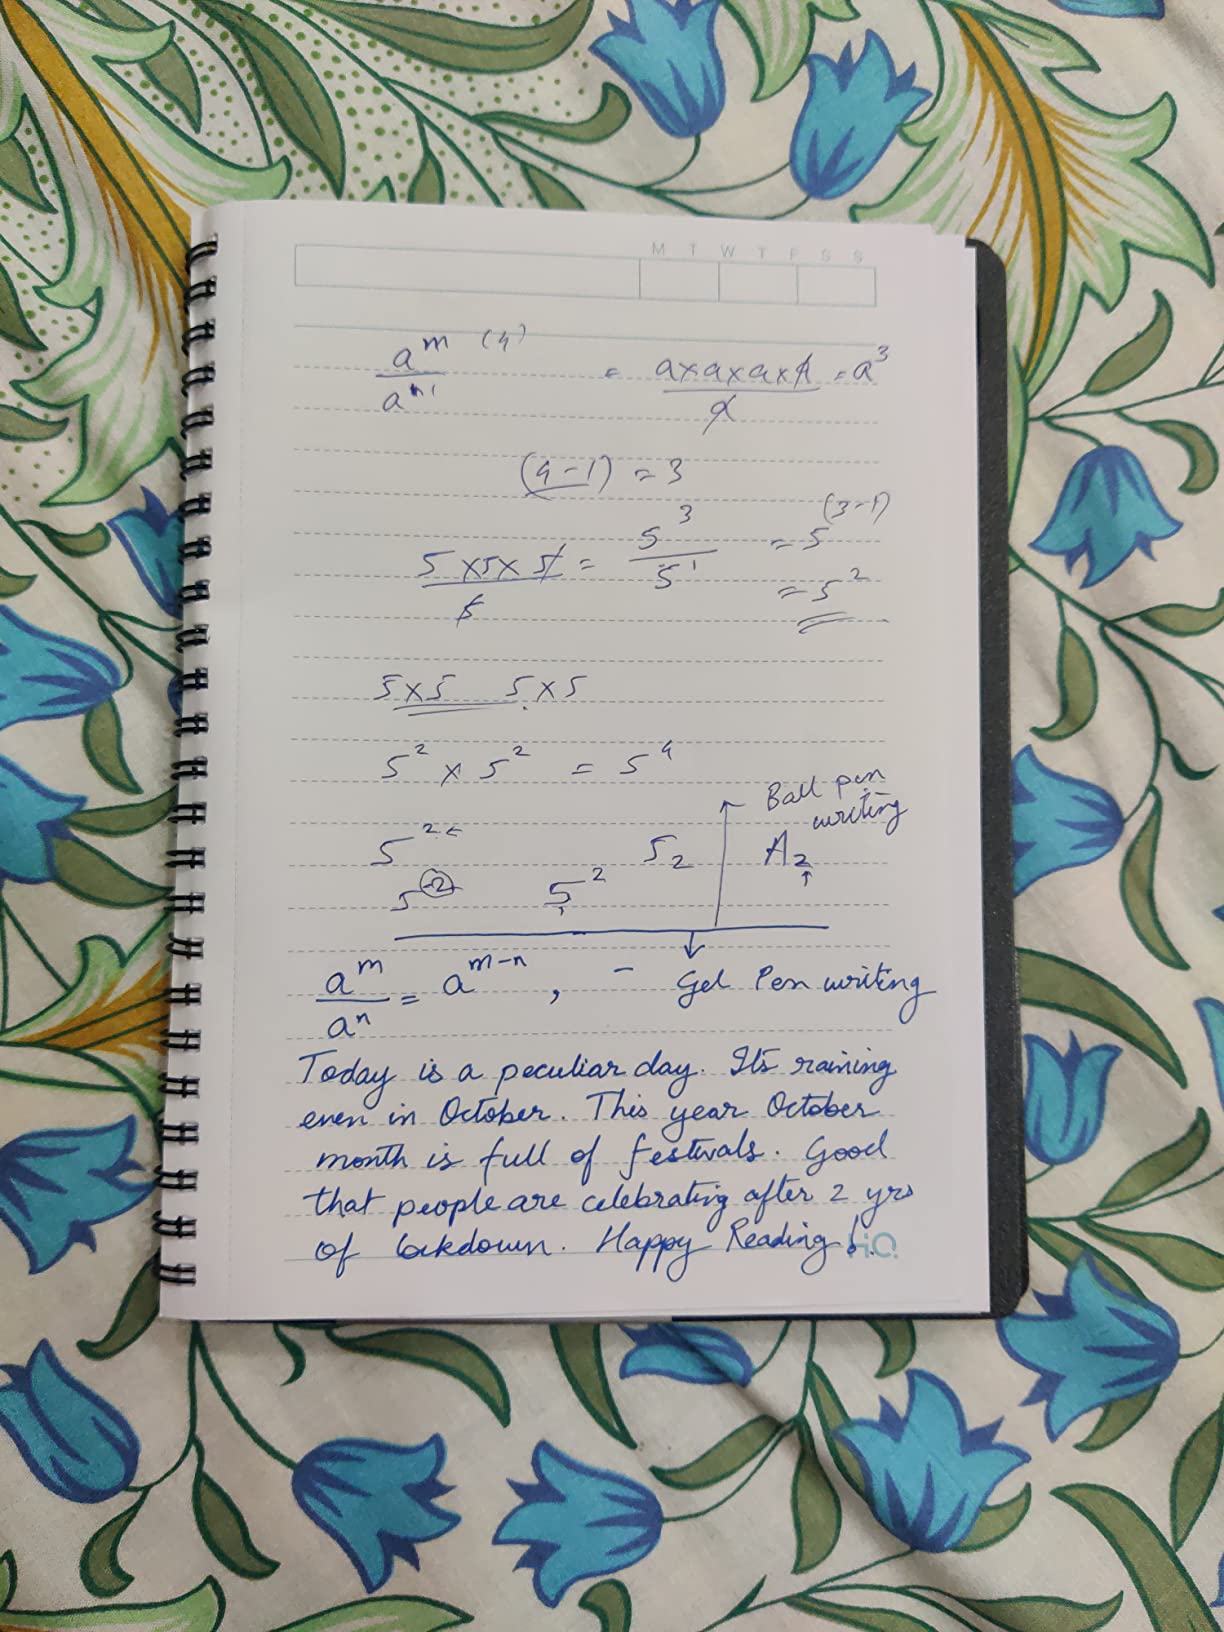 M T W T F S S
a^m (4)
/ a^n 1 = a×a×a×a / a = a^3
(4-1) = 3
5×5×5 / 5 = 5^3 / 5^1 = 5^(3-1)
= 5^2
5×5 5×5
5^2 × 5^2 = 5^4
Ball pen
writing
5^2 5_2 A_2
5^2 5^2
a^m / a^n = a^m-n , - Gel Pen writing
Today is a peculiar day. Its raining
even in October. This year October
month is full of festivals. Good
that people are celebrating after 2 yrs
of lockdown. Happy Reading!
HQ